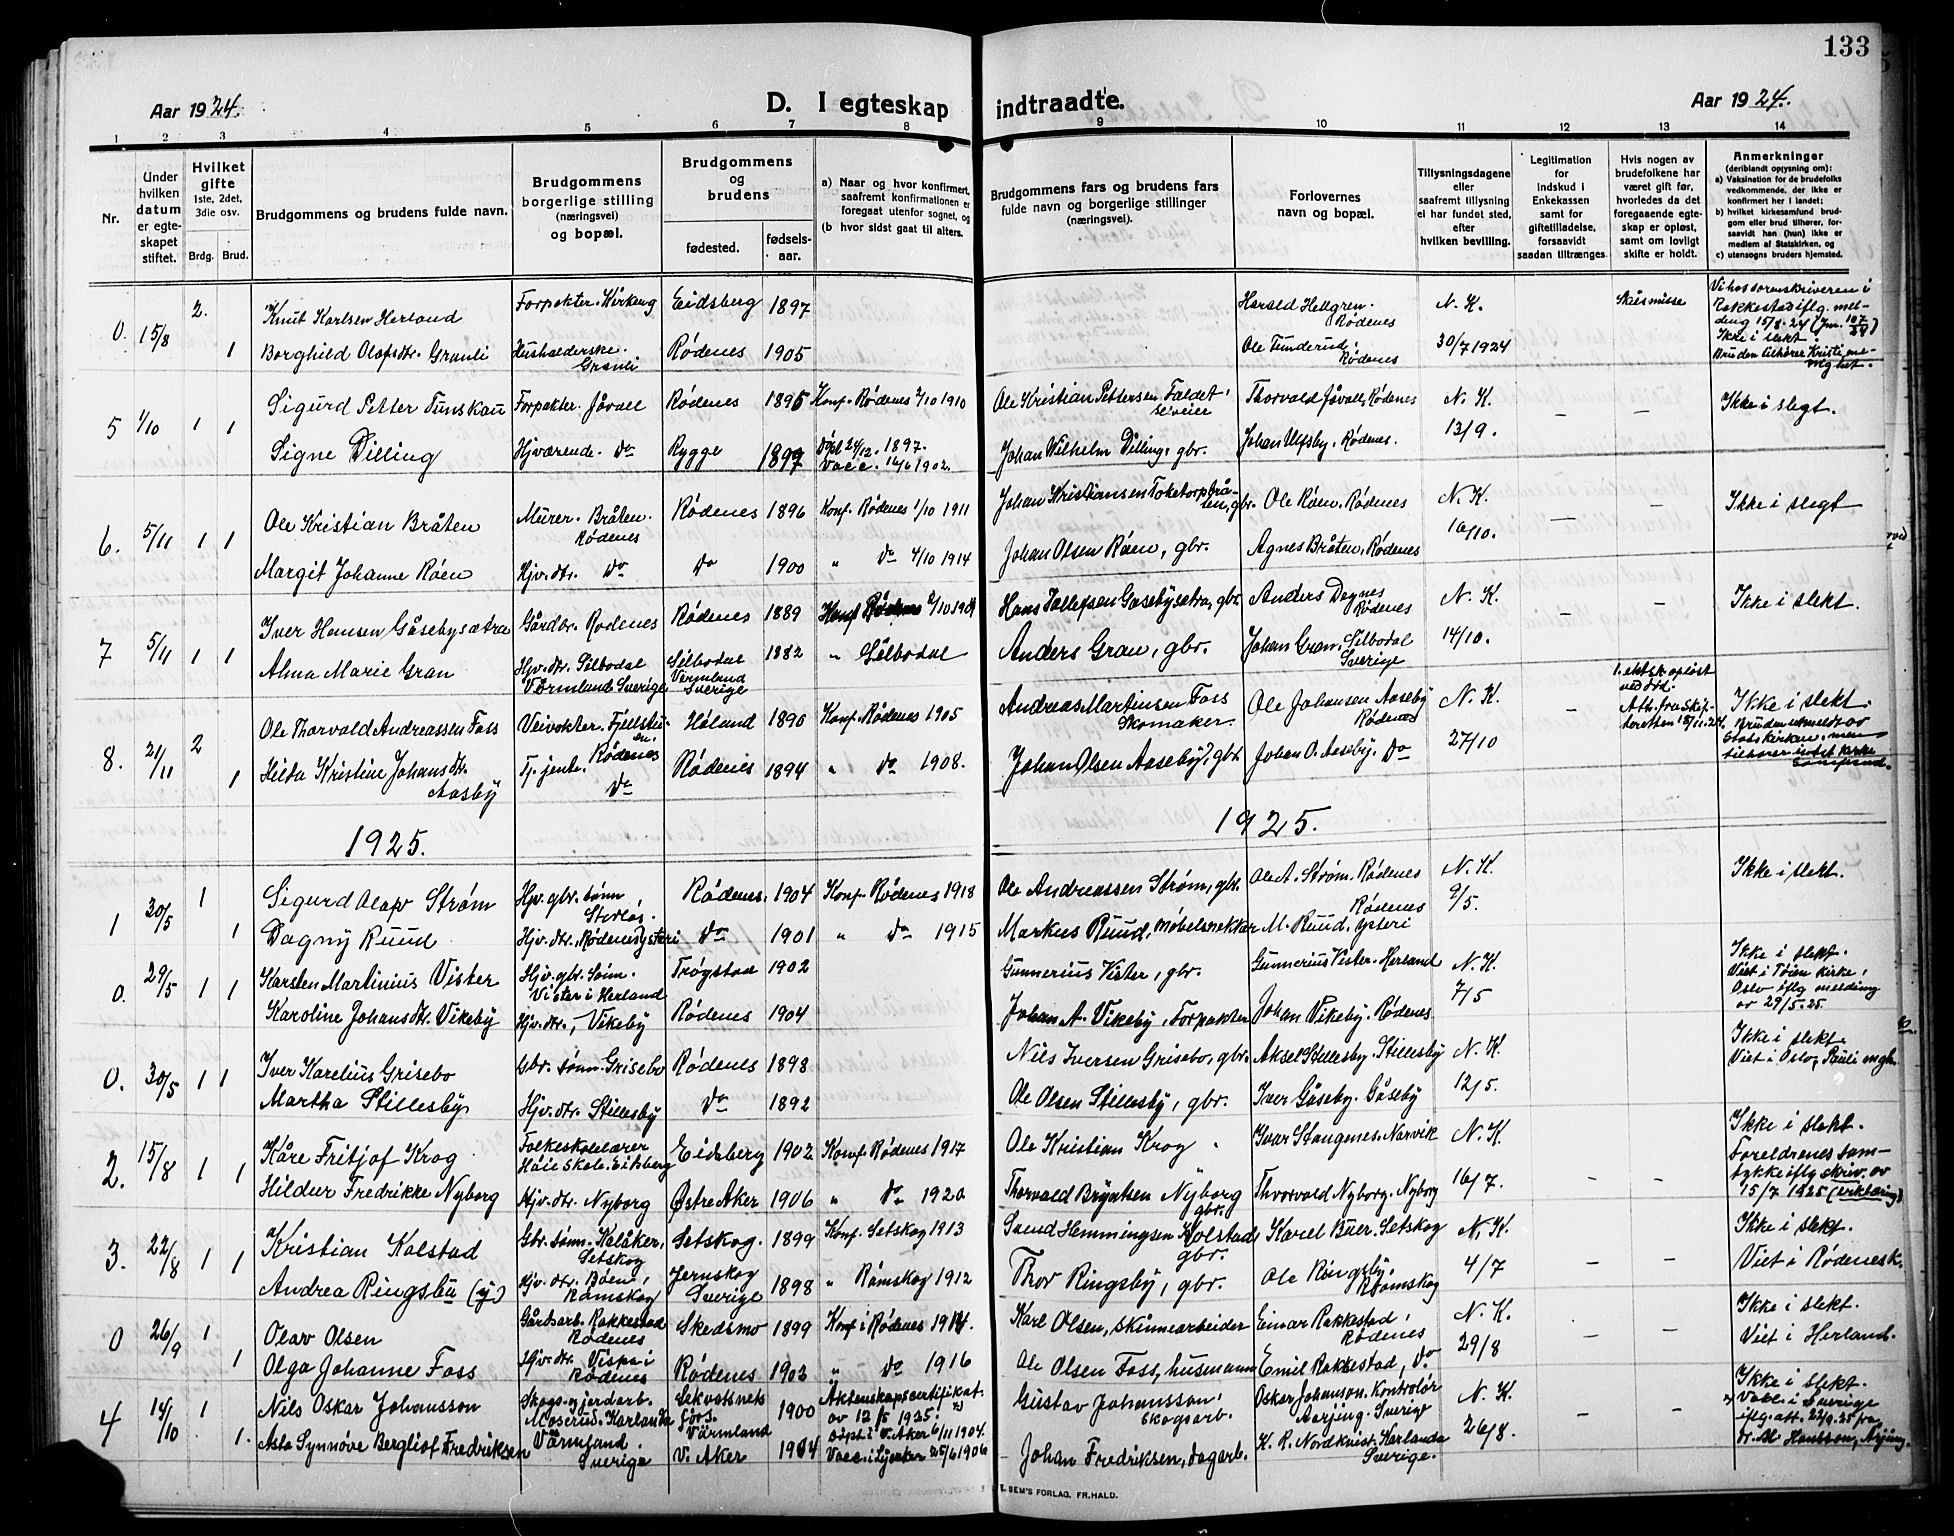 133
Aar 1924.
D. I egteskap indtraadte.
Aar 1924.
1 2 3 4 5 6 7 8 9 10 11 12 13 14
Nr.
Under hvilken datum er egteskapet stiftet.
Hvilket gifte 1ste, 2det, 3die osv.
Brdg. Brud.
Brudgommens og brudens fulde navn.
Brudgommens borgerlige stilling (næringsvei) og bopæl.
Brudgommens og brudens
fødested.
fødselsaar.
a) Naar og hvor konfirmert, saafremt konfirmationen er foregaat utenfor sognet, og
(b hvor sidst gaat til alters.
Brudgommens fars og brudens fars fulde navn og borgerlige stillinger (næringsvei).
Forlovernes navn og bopæl.
Tillysningsdagene eller saafremt tillysning ei har fundet sted, efter hvilken bevilling.
Legitimation for indskud i Enkekassen samt for giftetilladelse, forsaavidt saadan tiltrænges.
Hvis nogen av brudefolkene har været gift før, hvorledes da det foregaaende egteskap er opløst, samt om lovligt skifte er holdt.
Anmerkninger (deriblandt oplysning om):
a) Vaksination for de brudefolks vedkommende, der ikke er konfirmert her i landet;
b) hvilket kirkesamfund brudgom eller brud tilhører, forsaavidt han (hun) ikke er medlem af Statskirken, og
c) utensogns bruders hjemsted.
0. 15/8 2. Knut Karlsen Herland Forpakter. Kirkeng Eidsberg 1897 Harald Hellgren. Rødenes N. K. Skilsmisse Vi hos sorenskriveren i Rakkestad iflg. meldeng 15/8-24 (Jnr. 107/24)
1 Borghild Olafsdtr. Granli Husholderske. Granli Rødenes 1905 Ole Tunderud. Rødenes 30/7 1924 Ikke i slekt. Bruden tilhører Kristi menighet.
5 1/10 1 1 Sigurd Petter Tunskau Forpakter. Jåvall Rødenes 1895 Konf. Rødenes 2/10 1910 Ole Kristian Pettersen Faldet, selveier Thorvald Jåvall, Rødenes N. K. – – Ikke i slegt.
Signe Dilling Hjværende. Do Rygge 1897 Døpt 24/12. 1897. Vacc. 16/6 1902. Johan Wilhelm Dilling, gbr. Johan Ulfsby, Rødenes. 13/9.
6. 5/11 1 1 Ole Kristian Bråten Murer. Bråten. Rødenes Rødenes 1896 Konf. Rødenes 1/10 1911 Johan Kristiansen Toketorpbråten, gbr. Ole Røen. Rødenes N. K. – – Ikke i slegt
Margit Johanne Røen Hjv. dtr. Do Do 1900 " Do 4/10 1914 Johan Olsen Røen, gbr. Agnes Bråten, Rødenes 16/10.
7 5/11 1 1 Iver Hansen Gåsebysætra Gårdbr. Rødenes Rødenes 1889 Konf. Rødenes 2/10 1904 Hans Tollefsen Gasebysetra, gbr. Anders Degnes Rødenes N. K. – – Ikke i slekt.
Alma Marie Gran Hjv. dtr. Silbodal Värmland Sverige Silbodal Vermland Sverige 1882 " Silbodal Anders Gran, gbr. Johan Gran, Silbodal Sverige 14/10.
8. 21/11 2 Ole Thorvald Andreassen Foss Veivokter. Fjellstuen. Rødenes Høland 1890 Konf. Rødenes 1905 Andreas Martinsen Foss Skomaker. Ole Johansen Aaseby Rødenes N. K. – 1. ektsk. opløst ved død. Att. fra skifteretten 18/11-24. Ikke i slekt. Bruden utmeldt av Statskirken, men tilhører intet kirkesamfund.
1 Hilda Kristine Johansdtr. Aasby Tj. jente. Do Rødenes 1894 " Do 1908. Johan Olsen Aaseby, gbr. Johan O. Aaseby. Do 27/10
1925. 1925.
1 30/5 1 Sigurd Olav Strøm Hjv. gbr. sønn Rødenes. 1904 Konf. Rødenes 1918 Ole Andreassen Strøm, gbr. Ole A. Strøm. Rødenes N. K. Ikke i slekt.
1 Dagny Ruud Hjv. dtr. Rødenes Ysteri Do 1901 " Do 1915 Markus Ruud, møbelsnekker M. Ruud, Rødenes ysteri 9/5.
0. 29/5 1 1 Karsten Martinius Vister Hjv. gbr. sønn. Vister i Herland Trøgstad 1902 Gunnerius Vister, gbr. Gunnerius Vister. Herland N. K. Ikke i slekt. Viet i Tøien kirke, Oslo iflg melding av 29/5-25.
Karoline Johansdtr. Vikeby Hjv. dtr., Vikeby Rødenes 1904 Johan A. Vikeby, Forpakter Johan Vikeby. Rødenes 7/5
0. 30/5 1 1 Iver Karelius Grisebo Gbr. sønn. Grisebo Rødenes 1898 Nils Iversen Grisebo, gbr. Aksel Stillesby. Stillesby N. K. Ikke i slekt. Viet i Oslo, Pauli mgh.
Martha Stillesby Hjv. dtr. Stillesby Do 1892 Ole Olsen Stillesby, gbr. Iver Gåseby. Gåseby 12/5.
2. 15/8 1 1 Kåre Fritjof Krog Folkeskolelærer Høie skole. Eidsberg Eidsberg 1902 Konf. Rødenes 1917 Ole Kristian Krog Ivar Stangenes. Narvik N. K. – – Ikke i slekt. Foreldrenes samtykke iflg skriv. av 15/7 1925 (erklæring)
Hildur Fredrikke Nyborg Hjv. dtr. Nyborg Østre Aker 1906 " Do 1920 Thorvald Bryntsen Nyborg gbr. Thorvald Nyborg. Nyborg 16/7.
3. 22/8 1 1 Kristian Kolstad Gbr. sønn. Kolåker, Setskog Setskog. 1899 Konf. Setskog 1913 Svend Hemmingsen Kolstad gbr. Karel Buer. Setskog N. K. – – Ikke i slekt.
Andrea Ringsbu (y) Hjv. dtr. Bøen, Rømskog Jernskog Sverige 1898 " Rømskog 1912 Thor Ringsby, gbr. Ole Ringsby. Rømskog 4/7 Viet i Rødenesk.
0 26/9 1 Olav Olsen Gårdsarb. Rakkestad Rødenes Skedsmo 1899 Konf. i Rødenes 1914. Karl Olsen, skinnearbeider Einar Rakkestad, Rødenes N. K. – – Ikke i slekt.
1 Olga Johanne Foss Hjv. dtr. Rødenes Rødenes 1902 " Do 1916 Ole Olsen Foss, husmann Emil Rakkestad, Do 29/8 Viet i Herland.
4 14/10 1 Nils Oskar Johansson Skogs- og jordarb. Moserud. Karlanda Värmland. Sverige 1900 Äktenskapscertifikat av 12/5 1925. Gustav Johansson, skogsarb. Oskar Johanson. Kontrolør Aarjing. Sverige N. K. Ikke i slekt. Vakc. i Sverige iflg. att. 22/9. 25 fra
1. Asta Synnøve Bergliot Fredriksen V. Aker 1904 Døpt i V. Aker 6/11 1904. Johan Fredriksen, dagarb. K. R. Nordkvist. Karlanda Sverige. 26/8. Hansson, Årjäng.
E. SEM'S FORLAG. FR.HALD.